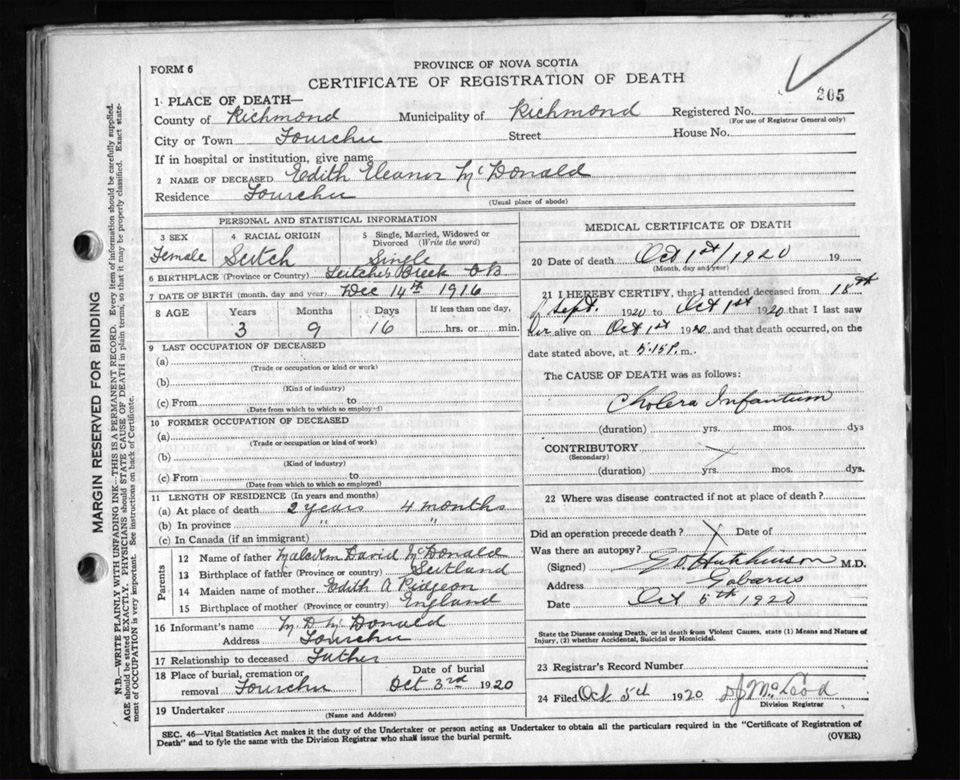 FORM 6
PROVINCE OF NOVA SCOTIA
CERTIFICATE OF REGISTRATION OF DEATH
205
1 PLACE OF DEATH—
County of Richmond Municipality of Richmond Registered No.
(For use of Registrar General only)
City or Town Fourchu Street House No.
If in hospital or institution, give name
2 NAME OF DECEASED Edith Eleanor McDonald
Residence Fourchu (Usual place of abode)
PERSONAL AND STATISTICAL INFORMATION
3 SEX 4 RACIAL ORIGIN 5 Single, Married, Widowed or Divorced (Write the word)
Female Scotch Single
6 BIRTHPLACE (Province or Country) Leitches Creek C.B.
7 DATE OF BIRTH (month, day and year) Dec 14th 1916
8 AGE Years Months Days If less than one day,
3 9 16 hrs. or min.
9 LAST OCCUPATION OF DECEASED
(a)
(Trade or occupation or kind or work)
(b)
(Kind of industry)
(c) From to
(Date from which to which so employed)
10 FORMER OCCUPATION OF DECEASED
(a)
(Trade or occupation or kind of work)
(b)
(Kind of industry)
(c) From to
(Date from which to which so employed)
11 LENGTH OF RESIDENCE (In years and months)
(a) At place of death 2 years 4 months
(b) In province " "
(c) In Canada (if an immigrant)
Parents
12 Name of father Malcolm David McDonald
13 Birthplace of father (Province or country) Scotland
14 Maiden name of mother Edith A Pidgeon
15 Birthplace of mother (Province or country) England
16 Informant's name M. D. McDonald
Address Fourchu
17 Relationship to deceased Father
18 Place of burial, cremation or removal Fourchu Date of burial Oct 3rd 1920
19 Undertaker
(Name and Address)
MEDICAL CERTIFICATE OF DEATH
20 Date of death Oct 1st/1920 19
(Month, day and year)
21 I HEREBY CERTIFY, that I attended deceased from 18th
of Sept. 1920 to Oct 1st 1920 that I last saw
her alive on Oct 1st 1920 and that death occurred, on the
date stated above, at 5.15 P. m.
The CAUSE OF DEATH was as follows:
Cholera Infantum
(duration) yrs. mos. dys
CONTRIBUTORY
(Secondary)
(duration) yrs. mos. dys.
22 Where was disease contracted if not at place of death?
Did an operation precede death? Date of
Was there an autopsy?
(Signed) Hutchinson M.D.
Address Gabarus
Date Oct 5th 1920
State the Disease causing Death, or in death from Violent Causes, state (1) Means and Nature of
Injury, (2) whether Accidental, Suicidal or Homicidal.
23 Registrar's Record Number
24 Filed Oct 5th 1920 D J McLeod
Division Registrar
SEC. 46—Vital Statistics Act makes it the duty of the Undertaker or person acting as Undertaker to obtain all the particulars required in the "Certificate of Registration of
Death" and to fyle the same with the Division Registrar who shall issue the burial permit.
(OVER)
MARGIN RESERVED FOR BINDING
N.B.—WRITE PLAINLY WITH UNFADING INK—THIS IS A PERMANENT RECORD. Every item of information should be carefully supplied.
AGE should be stated EXACTLY. PHYSICIANS should STATE CAUSE OF DEATH in plain terms, so that it may be properly classified. Exact state-
ment of OCCUPATION is very important. See instructions on back of Certificate.